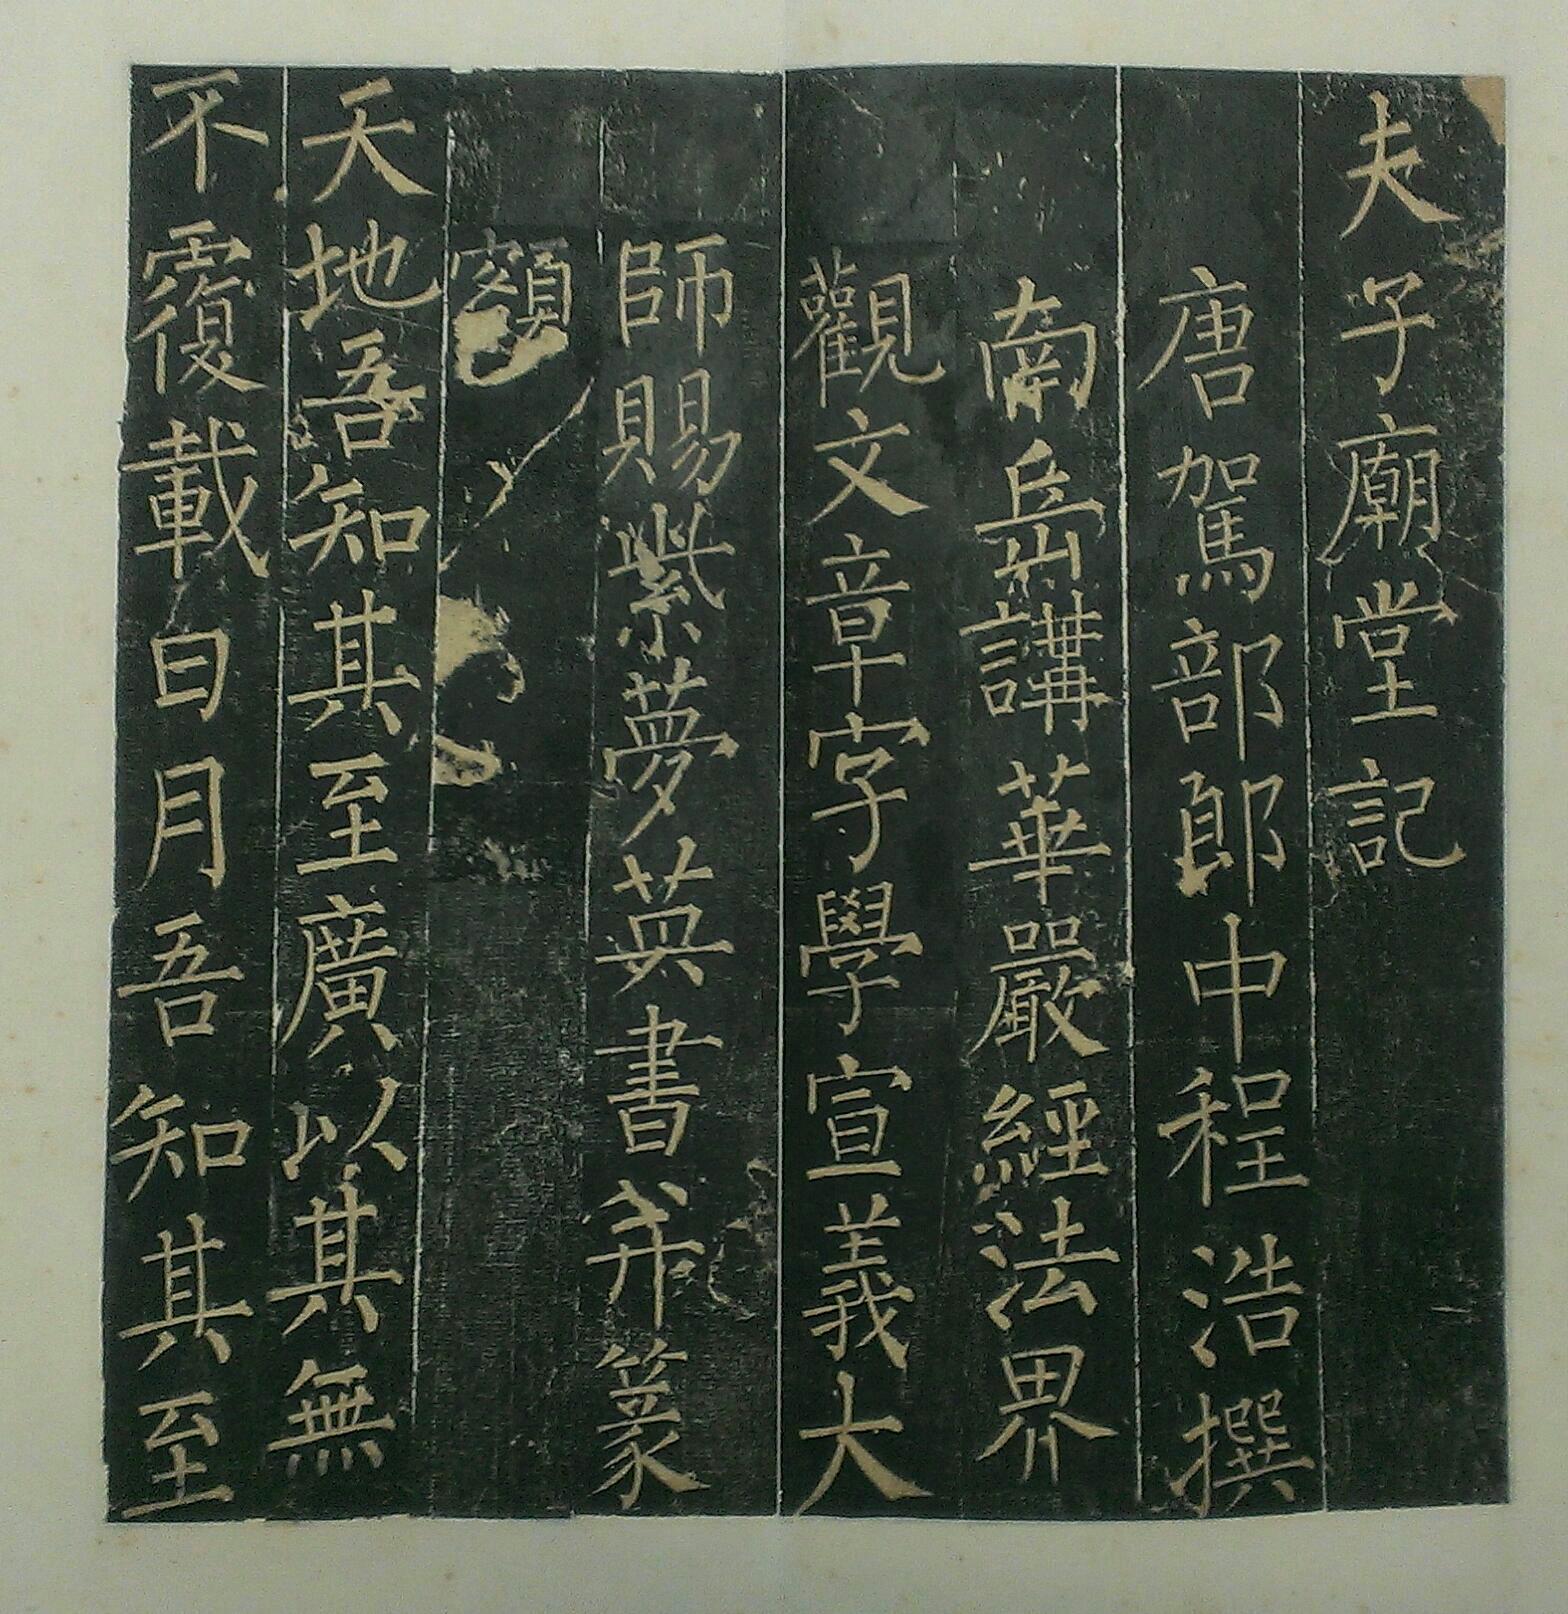 夫子廟堂記
唐駕部郎中程浩撰
南岳講華嚴經法界
觀文章字學宣義大
師賜紫夢英書并篆
額
天地吾知其至廣以其無
不覆載日月吾知其至